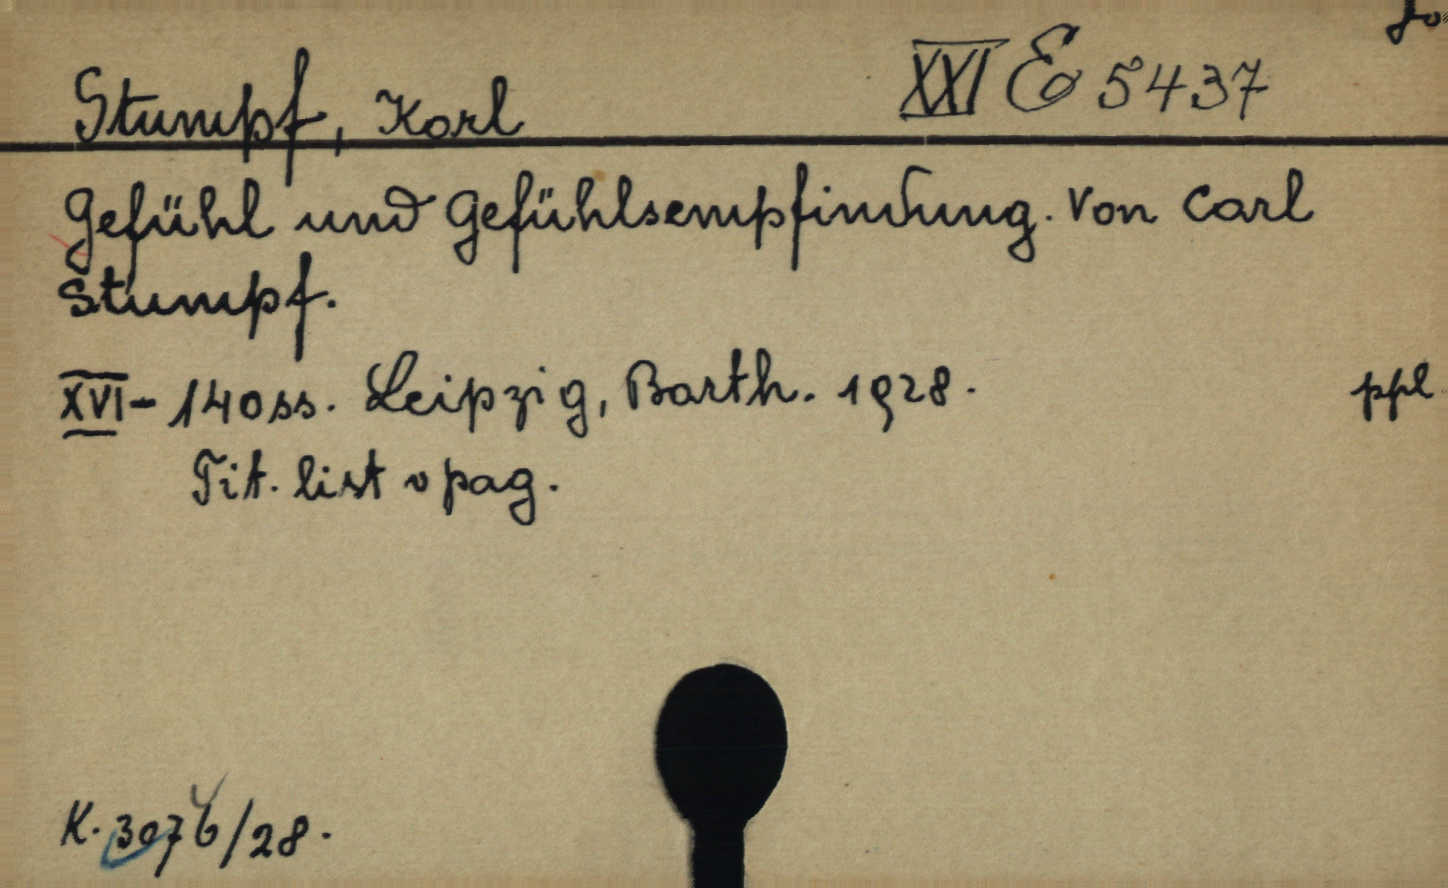 Stumpf, Karl XXI E 5437
Gefühl und Gefühlsempfindung. Von Carl
Stumpf.
XVI - 140 ss. Leipzig, Barth. 1928. ppl.
Tit. list v pag.
K. 3076/28.